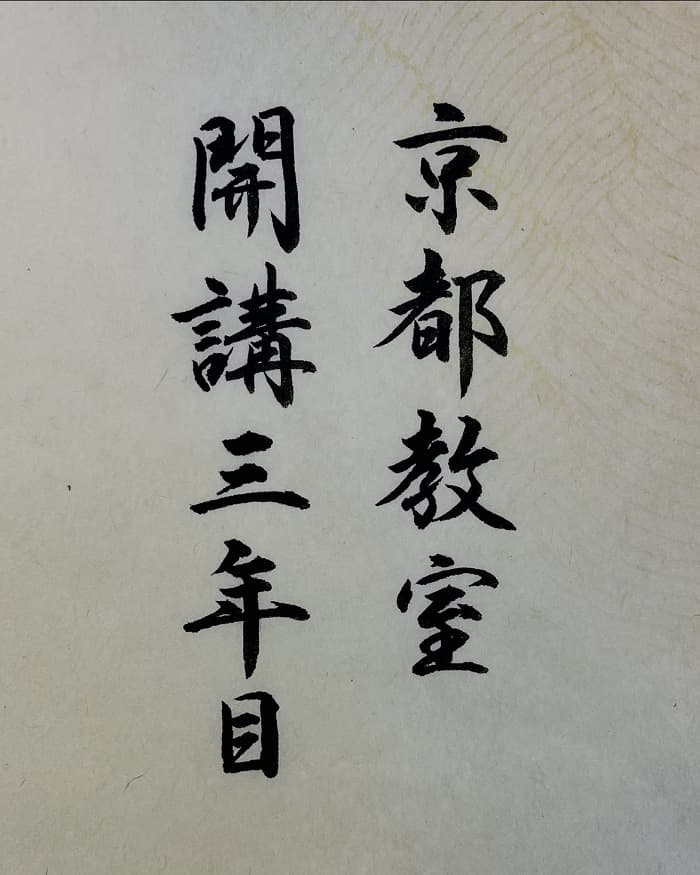 京都教室
開講三年目